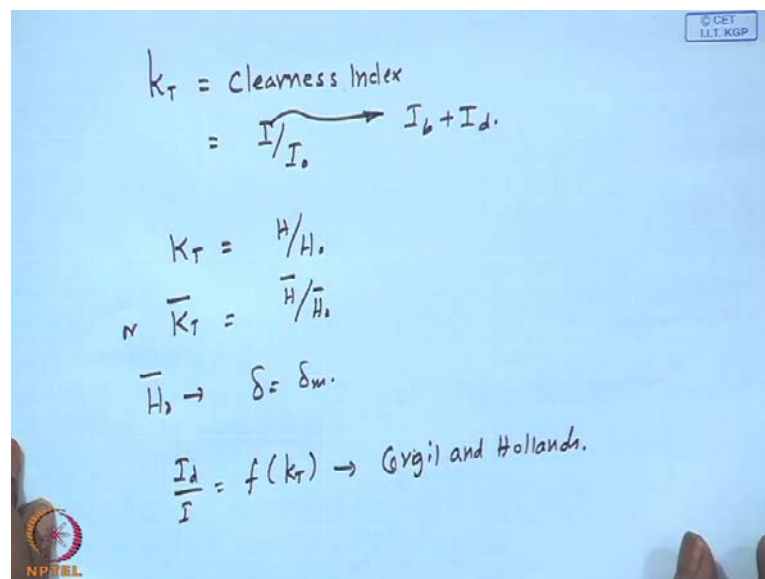 © CET
I.I.T. KGP
k_T = Clearness Index
= I/I_o → I_b + I_d.
K_T = H/H_o
N K̅_T = H̅/H̅_o
H̅_o → δ = δ_m.
I_d/I = f(k_T) → Orgil and Hollands.
NPTEL